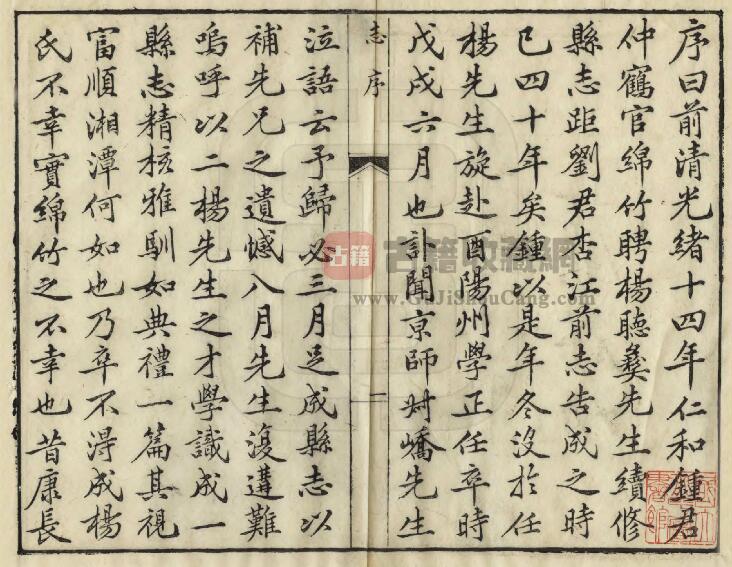 序曰前清光緒十四年仁和鍾君
仲鶴官綿竹聘楊聽彝先生續修
縣志距劉君杏江前志告成之時
已四十年矣鍾以是年冬沒於任
楊先生旋赴酉陽州學正任卒時
戊戌六月也訃聞京師時嶠先生
志序
一
泣語云予歸必三月足成縣志以
補先兄之遺憾八月先生復遘難
嗚呼以二楊先生之才學識成一
縣志精核雅馴如典禮一篇其視
富順湘潭何如也乃卒不淂成楊
氏不幸實綿竹之不幸也昔康長
古籍
古籍收藏網
www.GuJiShouCang.com